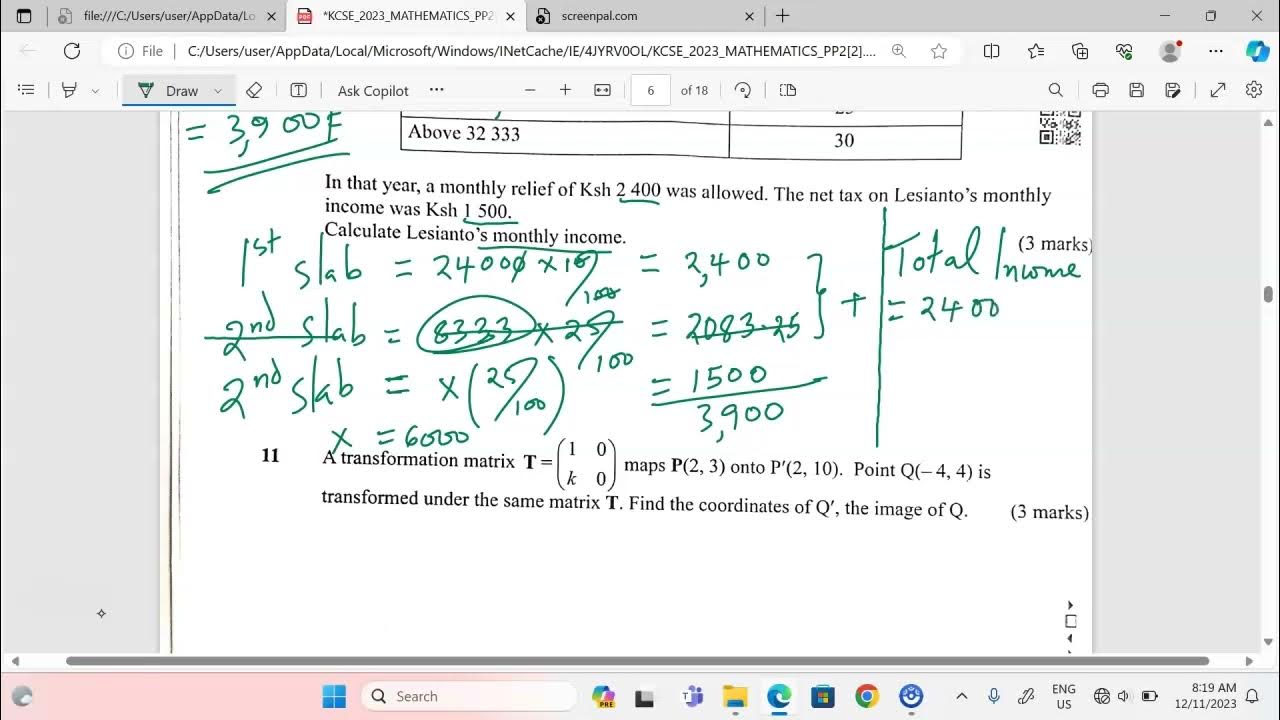 file:///C:/Users/user/AppData/Lo
*KCSE_2023_MATHEMATICS_PP2
screenpal.com
File C:/Users/user/AppData/Local/Microsoft/Windows/INetCache/IE/4JYRV0OL/KCSE_2023_MATHEMATICS_PP2[2]....
Draw Ask Copilot ... 6 of 18
= 3,900F
Above 32 333 30
In that year, a monthly relief of Ksh 2 400 was allowed. The net tax on Lesianto's monthly
income was Ksh 1 500.
Calculate Lesianto's monthly income. (3 marks)
1st slab = 24000 × 10/100 = 2,400
Total Income
2nd slab = 8333 × 25/100 = 2083.25 +
= 2400
2nd slab = x (25/100) = 1500
3,900
x = 6000
11 A transformation matrix T = (1 0 k 0) maps P(2, 3) onto P′(2, 10). Point Q(– 4, 4) is
transformed under the same matrix T. Find the coordinates of Q′, the image of Q. (3 marks)
Search
PRE
ENG
US
8:19 AM
12/11/2023